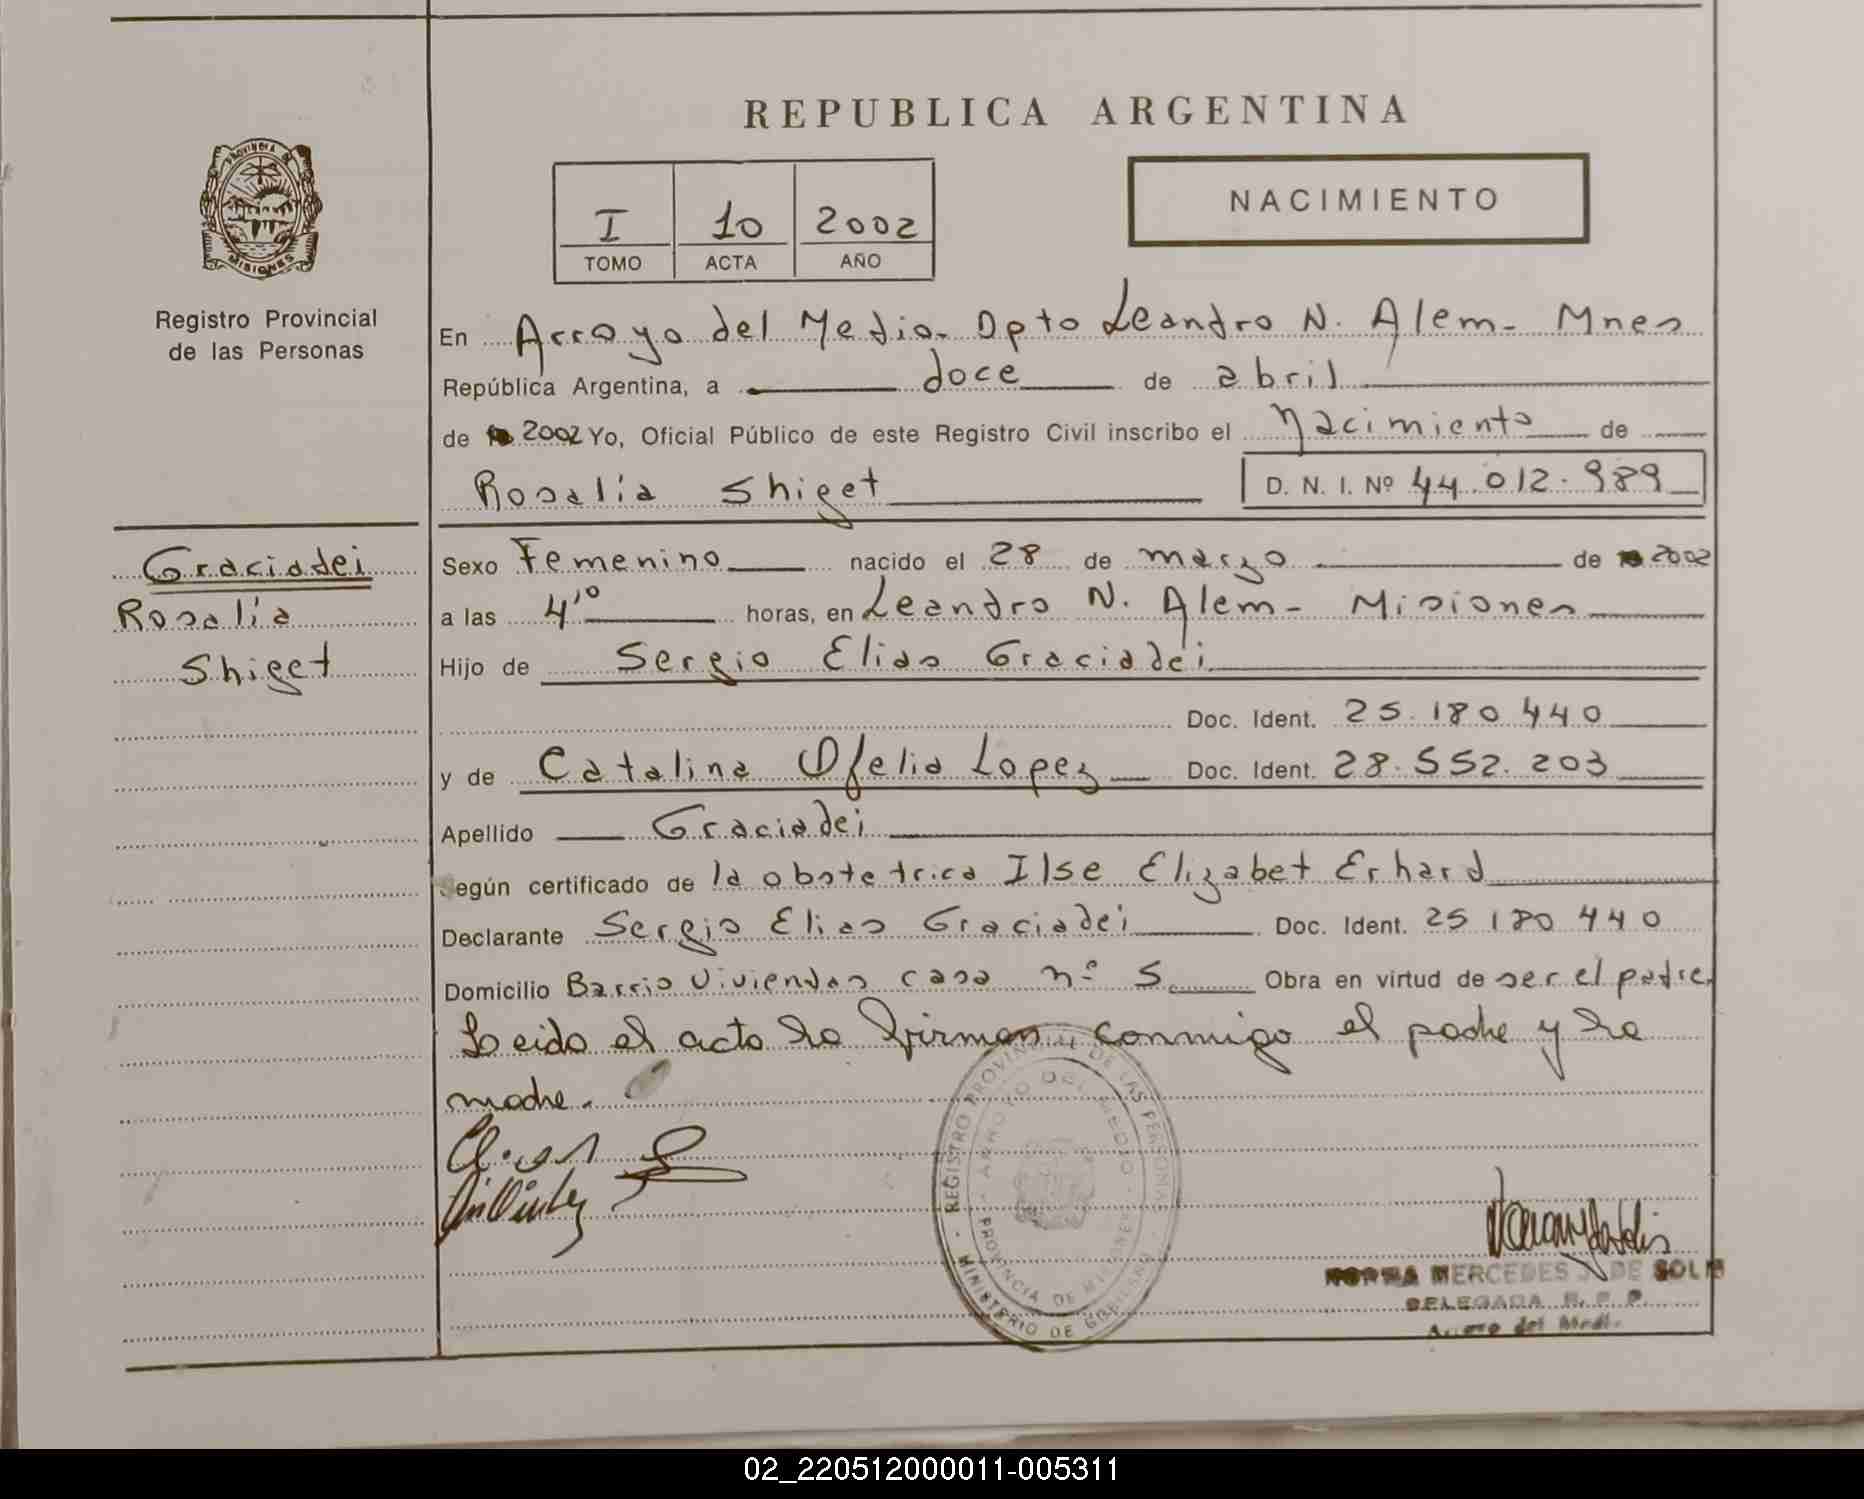 REPUBLICA ARGENTINA
PROVINCIA DE
MISIONES
Registro Provincial
de las Personas
I 10 2002
TOMO ACTA AÑO
NACIMIENTO
En Arroyo del Medio. Dpto Leandro N. Alem - Mnes
República Argentina, a doce de abril
de 2002 Yo, Oficial Público de este Registro Civil inscribo el Nacimiento de
Rosalía Shiget D. N. I. Nº 44.012.989
Graciadei
Rosalía
Shiget
Sexo Femenino nacido el 28 de marzo de 2002
a las 4'10 horas, en Leandro N. Alem - Misiones
Hijo de Sergio Elias Graciadei
Doc. Ident. 25.180.440
y de Catalina Ofelia Lopez Doc. Ident. 28.552.203
Apellido Graciadei
Según certificado de la obstetrica Ilse Elizabet Erhard
Declarante Sergio Elias Graciadei Doc. Ident. 25 180 440
Domicilio Barrio Viviendas casa nº 5 Obra en virtud de ser el padre.
Leido el acta la firman conmigo el padre y la
madre.
REGISTRO PROVINCIAL DE LAS PERSONAS
MINISTERIO DE GOBIERNO
ARROYO DEL MEDIO
PROVINCIA DE MISIONES
NORMA MERCEDES J. DE SOLIS
DELEGADA R. P. P.
Arroyo del Medio
02_220512000011-005311